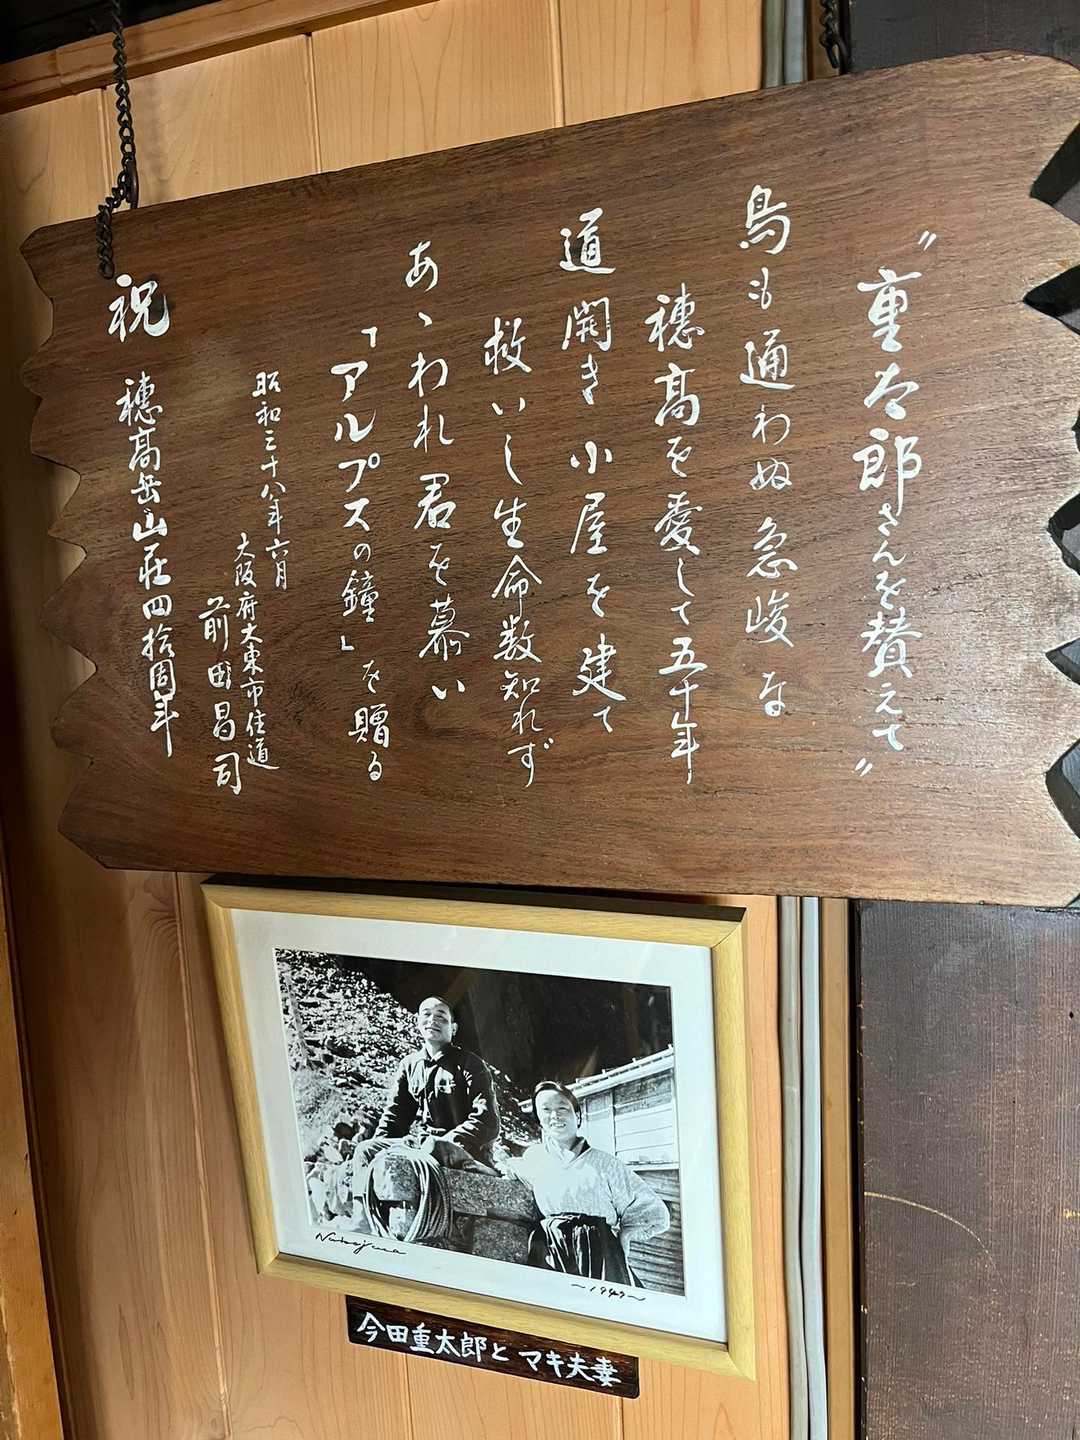 〃重太郎さんを賛えて〃
鳥も通わぬ急峻な
穂高を愛して五十年
道開き小屋を建て
救いし生命数知れず
あゝわれ君を慕い
「アルプスの鐘」を贈る
昭和三十八年六月
大阪府大東市住道
前田昌司
祝 穂高岳山荘四拾周年
~1949~
今田重太郎とマキ夫妻